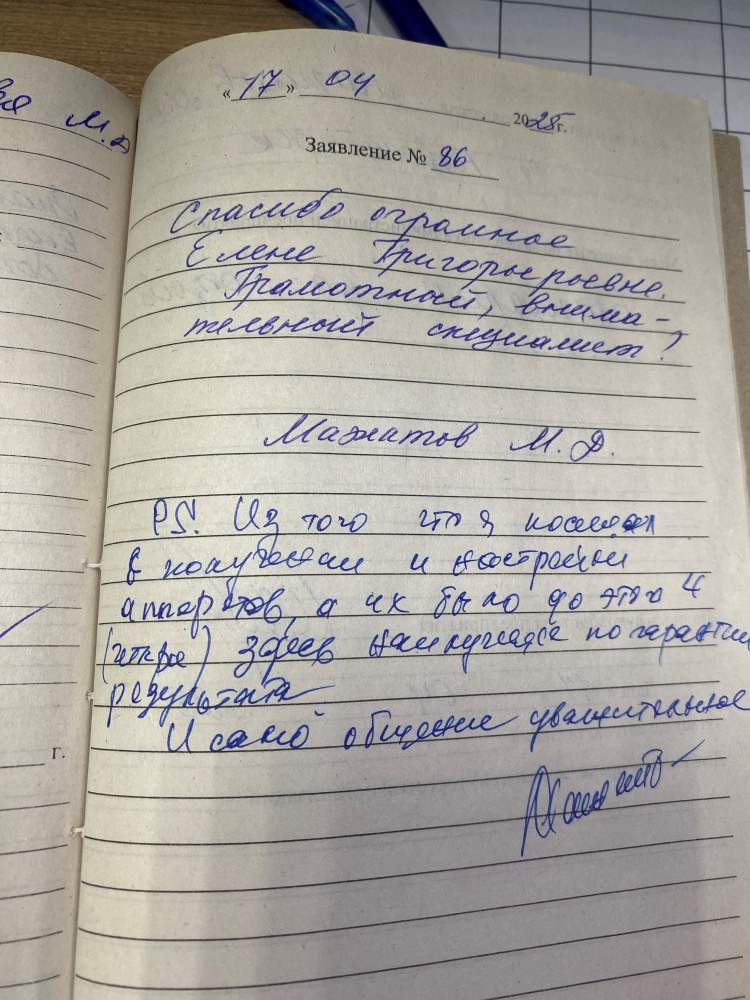 М.Д
«17» 04 2025г.
Заявление № 86
Спасибо огромное
Елене Григорьрьевне.
Грамотный, внима-
тельный специалист!
Мажитов М.Д.
P.S. Из того что я
в получении и настройки
аппаратов, а их было до этого 4
здесь наилучшее по гарантии
результата
И само общение уважительное
г.